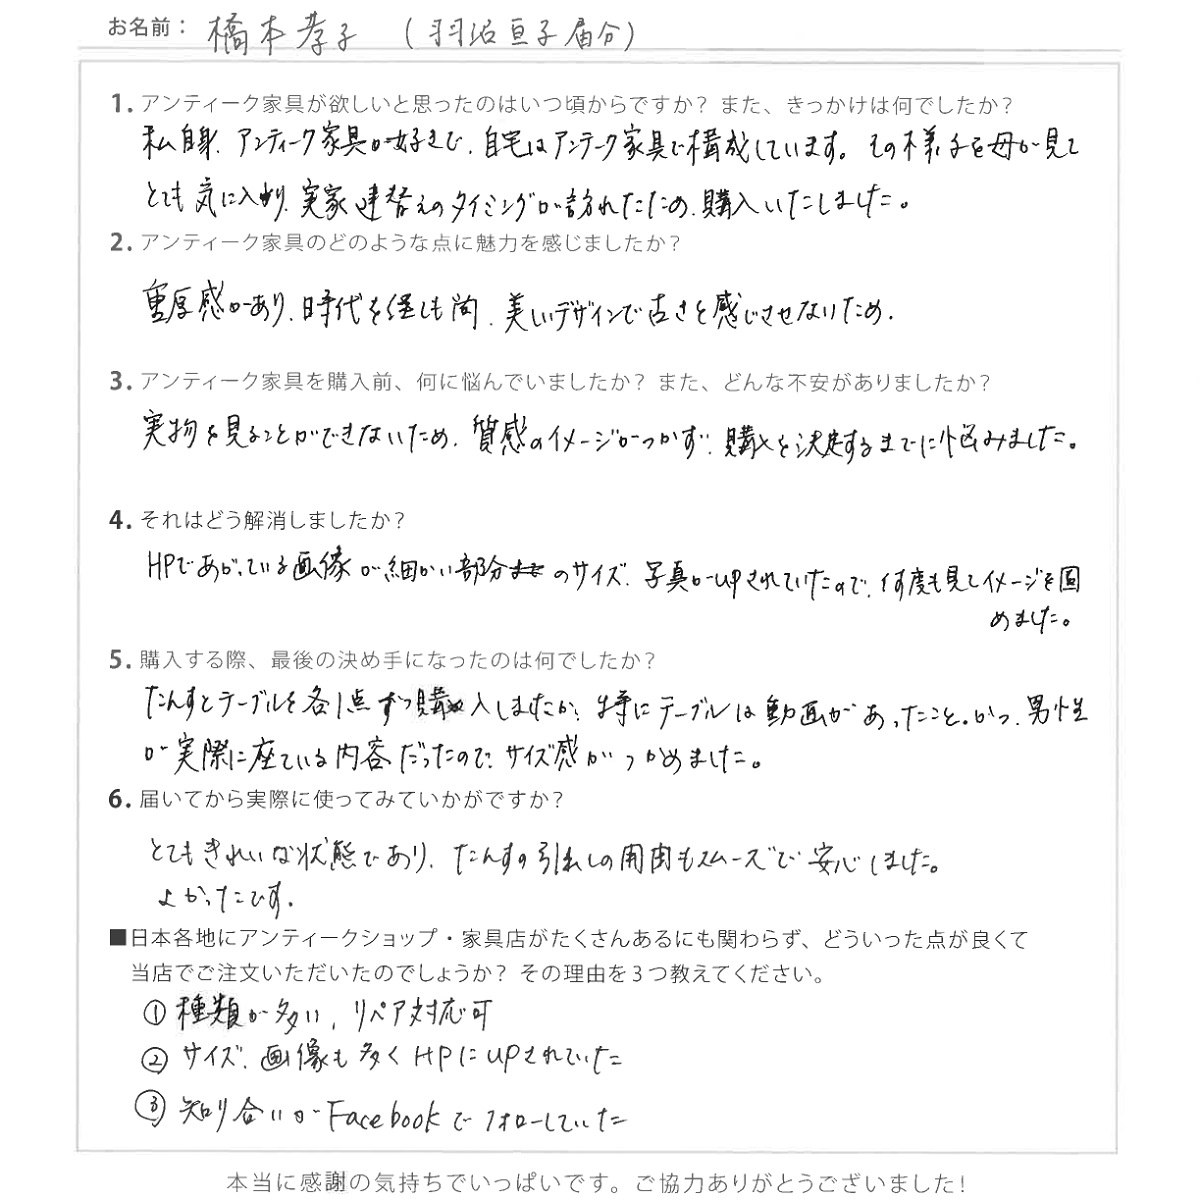 お名前： 橋本孝子 (羽沼亘子届分)
1. アンティーク家具が欲しいと思ったのはいつ頃からですか？ また、きっかけは何でしたか？
私自身、アンティーク家具が好きで、自宅はアンテーク家具で構成しています。その様子を母が見て
とても気に入り、実家建替えのタイミングが訪れたため、購入いたしました。
2. アンティーク家具のどのような点に魅力を感じましたか？
重厚感があり、時代を経ても尚、美しいデザインで古さを感じさせないため。
3. アンティーク家具を購入前、何に悩んでいましたか？ また、どんな不安がありましたか？
実物を見ることができないため、質感のイメージがつかず、購入を決定するまでに悩みました。
4. それはどう解消しましたか？
HPであがっている画像が細かい部分のサイズ、写真がupされていたので、何度も見てイメージを固
めました。
5. 購入する際、最後の決め手になったのは何でしたか？
たんすとテーブルを各1点ずつ購入しましたが、特にテーブルは動画があったこと。かつ、男性
が実際に座ている内容だったので、サイズ感がつかめました。
6. 届いてから実際に使ってみていかがですか？
とてもきれいな状態であり、たんすの引出しの開閉もスムーズで安心しました。
よかったです。
■日本各地にアンティークショップ・家具店がたくさんあるにも関わらず、どういった点が良くて
当店でご注文いただいたのでしょうか？ その理由を3つ教えてください。
① 種類が多い、リペア対応可
② サイズ、画像も多くHPにupされていた
③ 知り合いがFacebookでフォローしていた
本当に感謝の気持ちでいっぱいです。ご協力ありがとうございました！